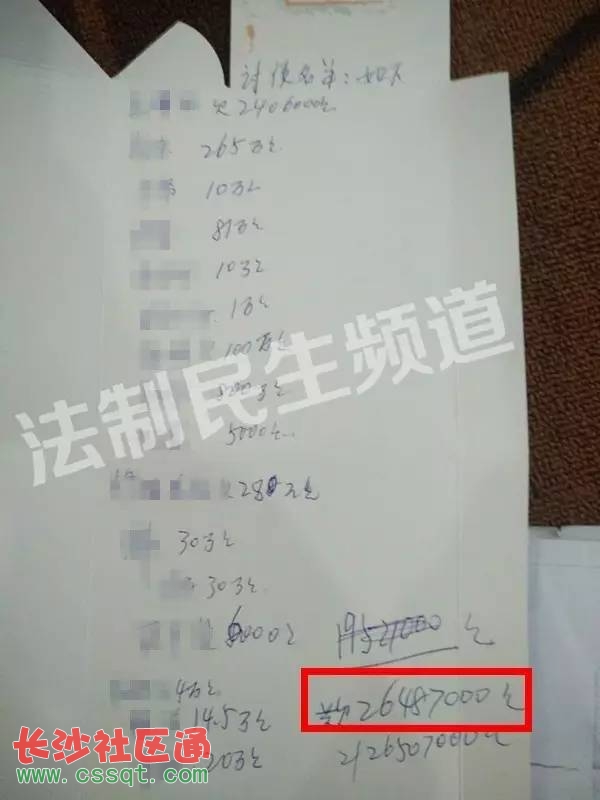 讨债名单:如下
欠2406000元
265万元
10万元
8万元
10万元
1万元
100万元
8000元
5000元
欠28万元
30万元
30万元
6000元
19527000元
4万元
共欠26487000元
14.5万元
20万元
26507000元
法制民生频道
长沙社区通
www.cssqt.com